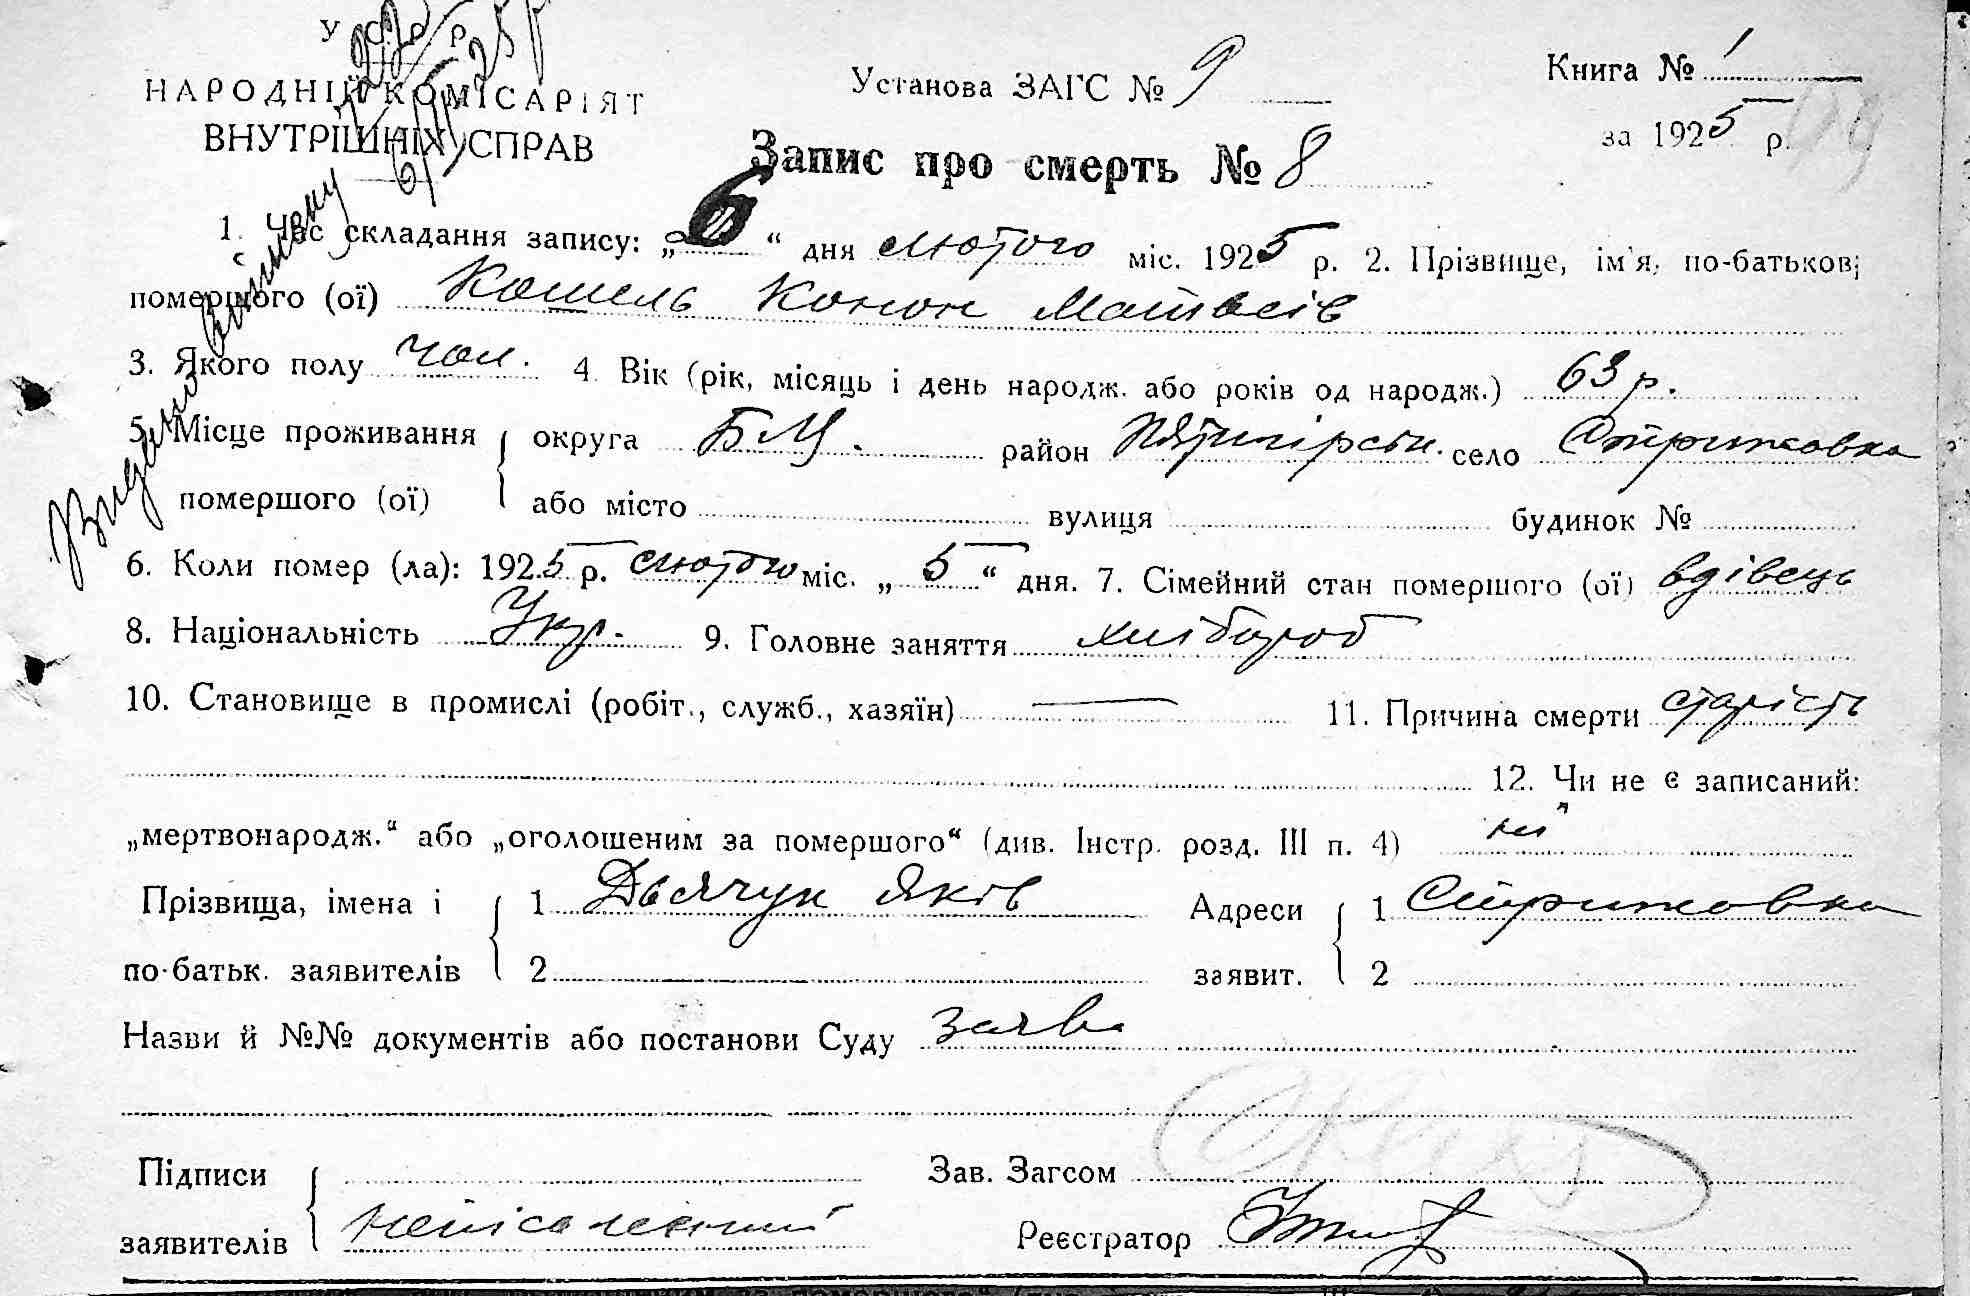 У С Р Р
НАРОДНІЙ КОМІСАРІЯТ
ВНУТРІШНІХ СПРАВ
Установа ЗАГС № 9
Книга № 1
за 1925 р.
Запис про смерть № 8
1. Час складання запису: „6“ дня лютого міс. 1925 р. 2. Прізвище, ім'я, по-батькові
помершого (ої) Кошель Конон Матвеїв
3. Якого полу чол. 4. Вік (рік, місяць і день народж. або років од народж.) 63 р.
5. Місце проживання округа БЦ. район Пятигірськ. село Стрижовка
помершого (ої) або місто вулиця будинок №
6. Коли помер (ла): 1925 р. лютого міс. „5“ дня. 7. Сімейний стан помершого (ої) вдівець
8. Національність Укр. 9. Головне заняття хлібороб
10. Становище в промислі (робіт., служб., хазяїн) — 11. Причина смерти старість
12. Чи не є записаний:
„мертвонародж.“ або „оголошеним за помершого“ (див. Інстр. розд. III п. 4) ні
Прізвища, імена і 1 Дьячук Яків Адреси 1 Стрижовка
по-батьк. заявителів 2 заявит. 2
Назви й №№ документів або постанови Суду заява
Підписи Зав. Загсом
заявителів неписьменний Реєстратор
Видано